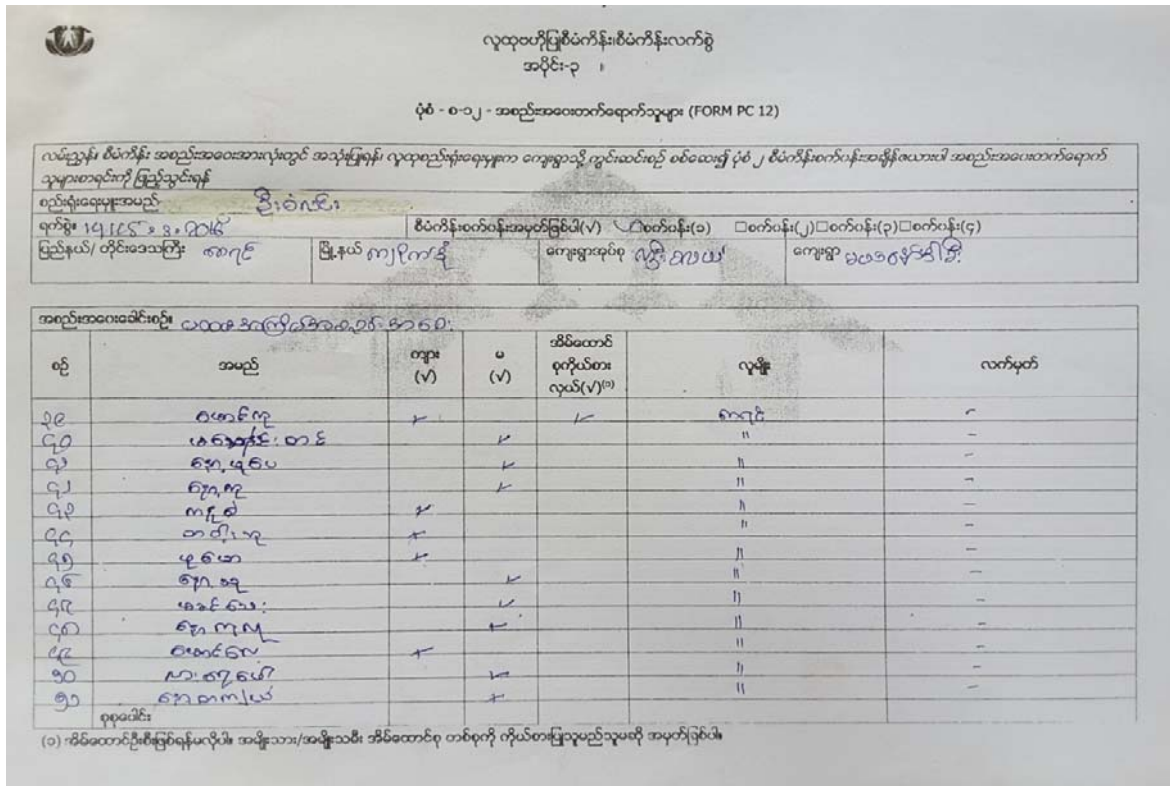 လူထုဗဟိုပြုစီမံကိန်း၊စီမံကိန်းလက်စွဲ
အပိုင်း-၃ ။
ပုံစံ - စ-၁၂ - အစည်းအဝေးတက်ရောက်သူများ (FORM PC 12)
လမ်းညွှန်။ စီမံကိန်း အစည်းအဝေးအားလုံးတွင် အသုံးပြုရန်၊ လူထုစည်းရုံးရေးမှူးက ကျေးရွာသို့ ကွင်းဆင်းစဉ် စစ်ဆေး၍ ပုံစံ ၂ စီမံကိန်းစက်ဝန်းအချိန်ဇယားပါ အစည်းအဝေးတက်ရောက်
သူများစာရင်းကို ဖြည့်သွင်းရန်
စည်းရုံးရေးမှူးအမည် ဦးဝံလင်း
ရက်စွဲ။ စီမံကိန်းစက်ဝန်းအမှတ်ဖြစ်ပါ(√) စက်ဝန်း(၁) □စက်ဝန်း(၂)□စက်ဝန်း(၃)□စက်ဝန်း(၄)
ပြည်နယ်/ တိုင်းဒေသကြီး ကရင် မြို့နယ် ကျေးရွာအုပ်စု ကျေးရွာ
အစည်းအဝေးခေါင်းစဉ်။ ပထမအကြိမ်အစည်းအဝေး
စဉ် အမည် ကျား (√) မ (√) အိမ်ထောင်စုကိုယ်စားလှယ်(√)⁽¹⁾ လူမျိုး လက်မှတ်
၃၉ မောင်ကု √ √ ကရင် -
၄၀ တင် √ " -
၄၁ နော်ဖုပေ √ " -
၄၂ နော်ကု √ " -
၄၃ √ " -
၄၄ √ " -
၄၅ √ " -
၄၆ နော် √ " -
၄၇ မခင်သေး √ " -
၄၈ နော်ကုလု √ " -
၄၉ မောင်လေ √ " -
၅၀ √ " -
၅၁ နော် √ " -
စုစုပေါင်း
(၁) အိမ်ထောင်ဦးစီးဖြစ်ရန်မလိုပါ။ အမျိုးသား/အမျိုးသမီး အိမ်ထောင်စု တစ်စုကို ကိုယ်စားပြုသူမည်သူမဆို အမှတ်ဖြစ်ပါ။